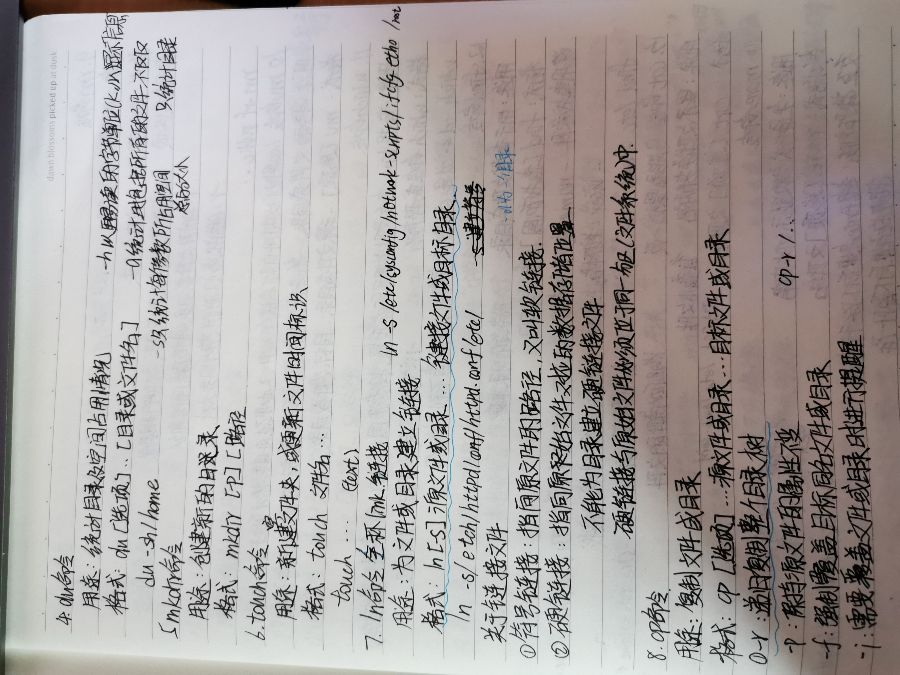 dawn blossoms picked up at dusk
4. du命令
用途：统计目录及空间占用情况
-h 以更易读的字节单位(K,M)显示信息
格式：du [选项]… [目录或文件名]
-a 统计时包括所有的文件，不仅仅只统计目录
du -sh /home
-s 只统计每个参数所占用空间总的大小
5 mkdir命令
用途：创建新的目录
格式：mkdir [-p] [路径
6. touch命令
用途：新建文件夹，或更新文件时间标识
格式：touch 文件名…
touch … (text)
7. ln命令 全称link 链接
用途：为文件或目录建立链接
ln -s /etc/sysconfig/network-scripts/ifcfg-etho /root
格式：ln [-s] 源文件或目录… 链接文件或目标目录
ln -s /etc/httpd/conf/httpd.conf /etc/
-d 为一个目录
关于链接文件
①符号链接：指向原文件的路径，又叫软链接
②硬链接：指向原始文件对应的数据存储位置
不能为目录建立硬链接文件
硬链接与原始文件必须位于同一分区(文件系统)中.
8. cp命令
用途：复制文件或目录
格式：cp [选项]… 源文件或目录… 目标文件或目录
①-r：递归复制整个目录树
cp -r /..
-p：保持源文件的属性不变
-f：强制覆盖目标同名文件或目录
-i：需要覆盖文件或目录时进行提醒